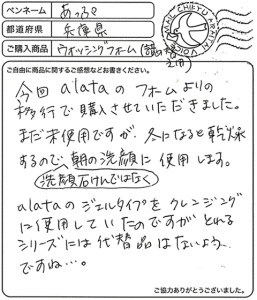 ペンネーム あっろく
都道府県 兵庫県
ご購入商品 ウォッシングフォーム(詰め替え用)
MAIL CHIETU ARMTAI VOICE
ご自由に商品に関するご感想などお書きください。
今回 alataの フォームよりの
移行で購入させていただきました。
まだ未使用ですが、冬になると乾燥
するので、朝の洗顔に使用します。
洗顔石けんではなく
alataの ジェルタイプを クレンジング
に使用していたのですが とれる
シリーズには 代替品はないよう
ですね…。
ご協力ありがとうございました。